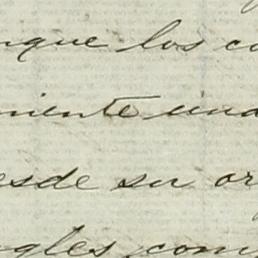 nque los co
niente una
esde su or
ngles com